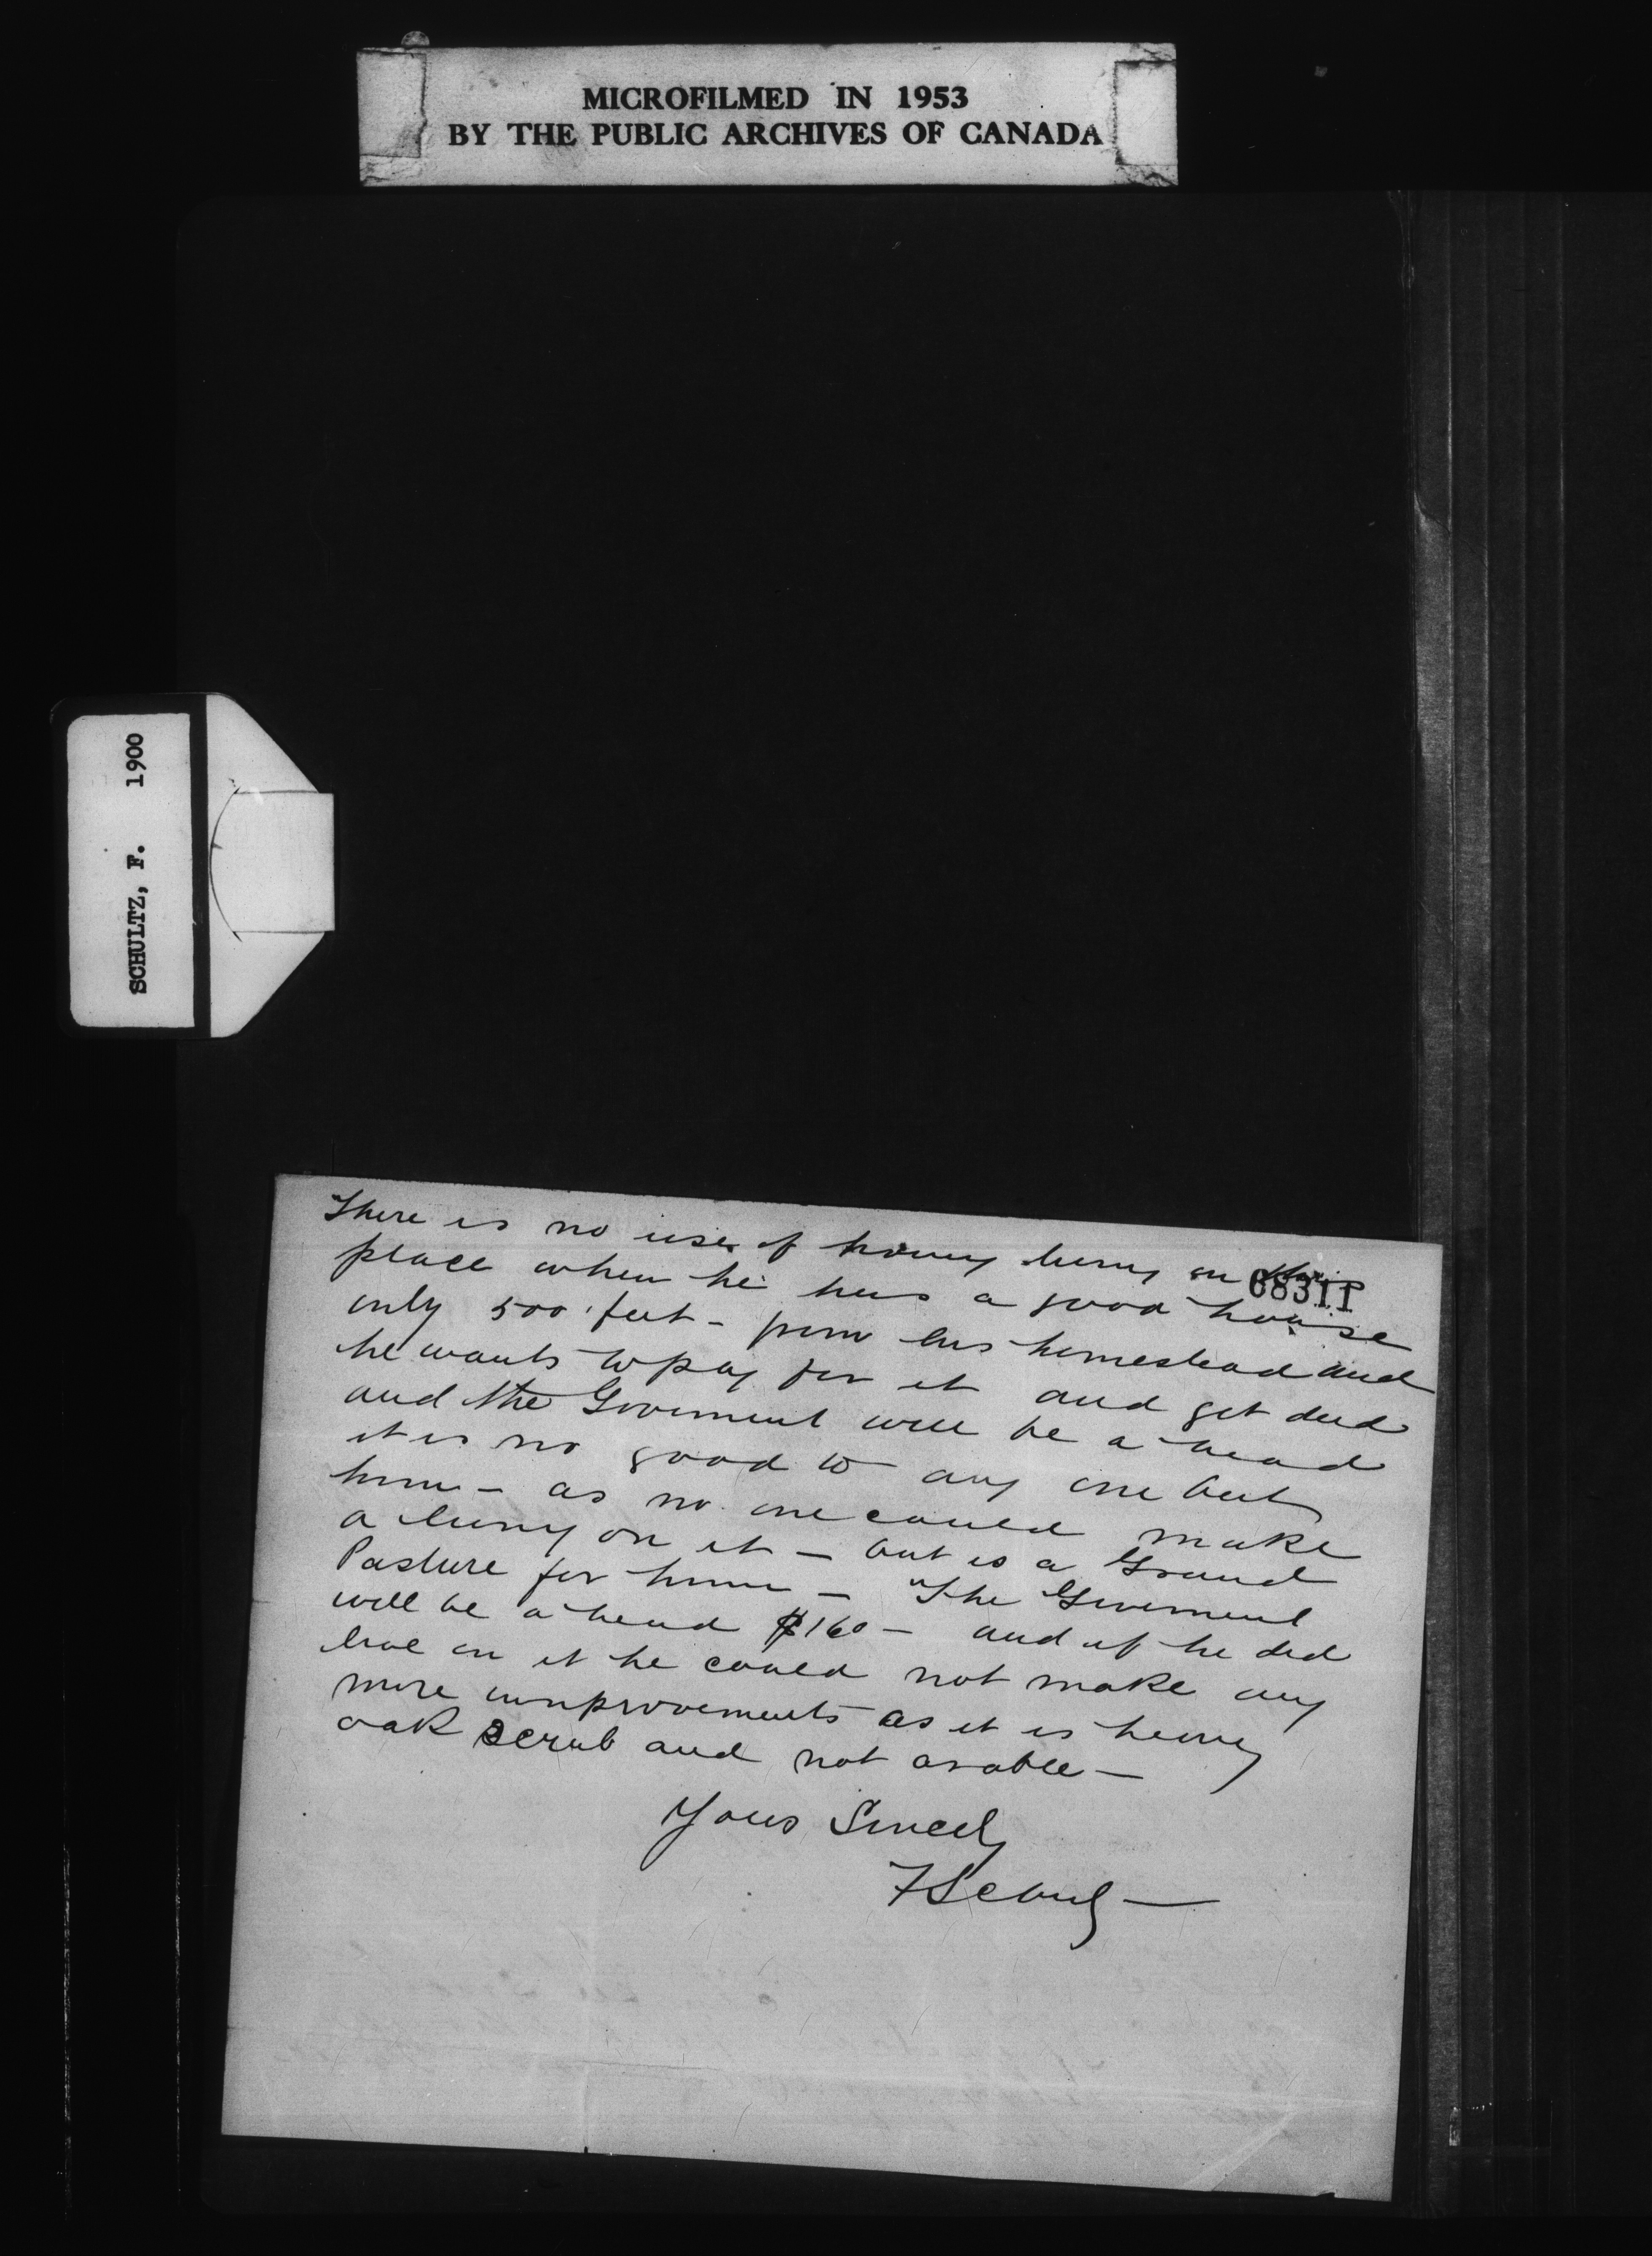 MICROFILMED IN 1953
BY THE PUBLIC ARCHIVES OF CANADA
SCHULTZ, F. 1900
68311
There is no use of him living on this
place when he has a good house
only 500 feet - from his homestead and
he wants to pay for it and get deed
and the Goverment will be a head
it is no good to any one but
him - as no one could make
a living on it - but is a Grand
Pasture for him - The Goverment
will be a head $160 - and if he did
live on it he could not make any
more improvements as it is heavy
oak scrub and not arable -
Yours Sincely
F Schultz